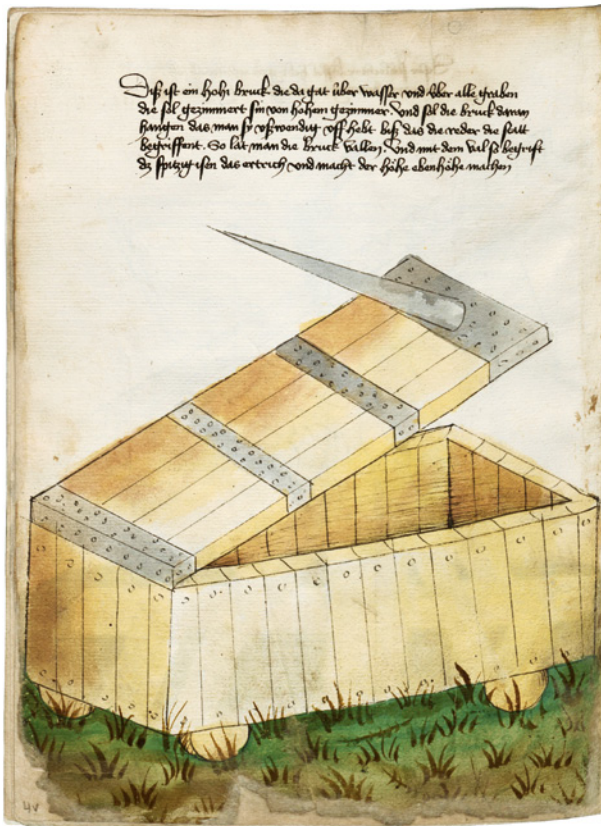 Diß ist ein hohi bruck die da gat über wasser vnd über alle graben
die sol gezimmert sin von hohem gezimmer. Vnd sol die bruck daran
hangen das man sy vßwendig vff hebt biß das die reder die statt
begriffent. So lat man die bruck vallen. Vnd mit dem val so begrift
dz spitzig isen das ertrich vnd macht der höhe ebenhöhe machen
4v